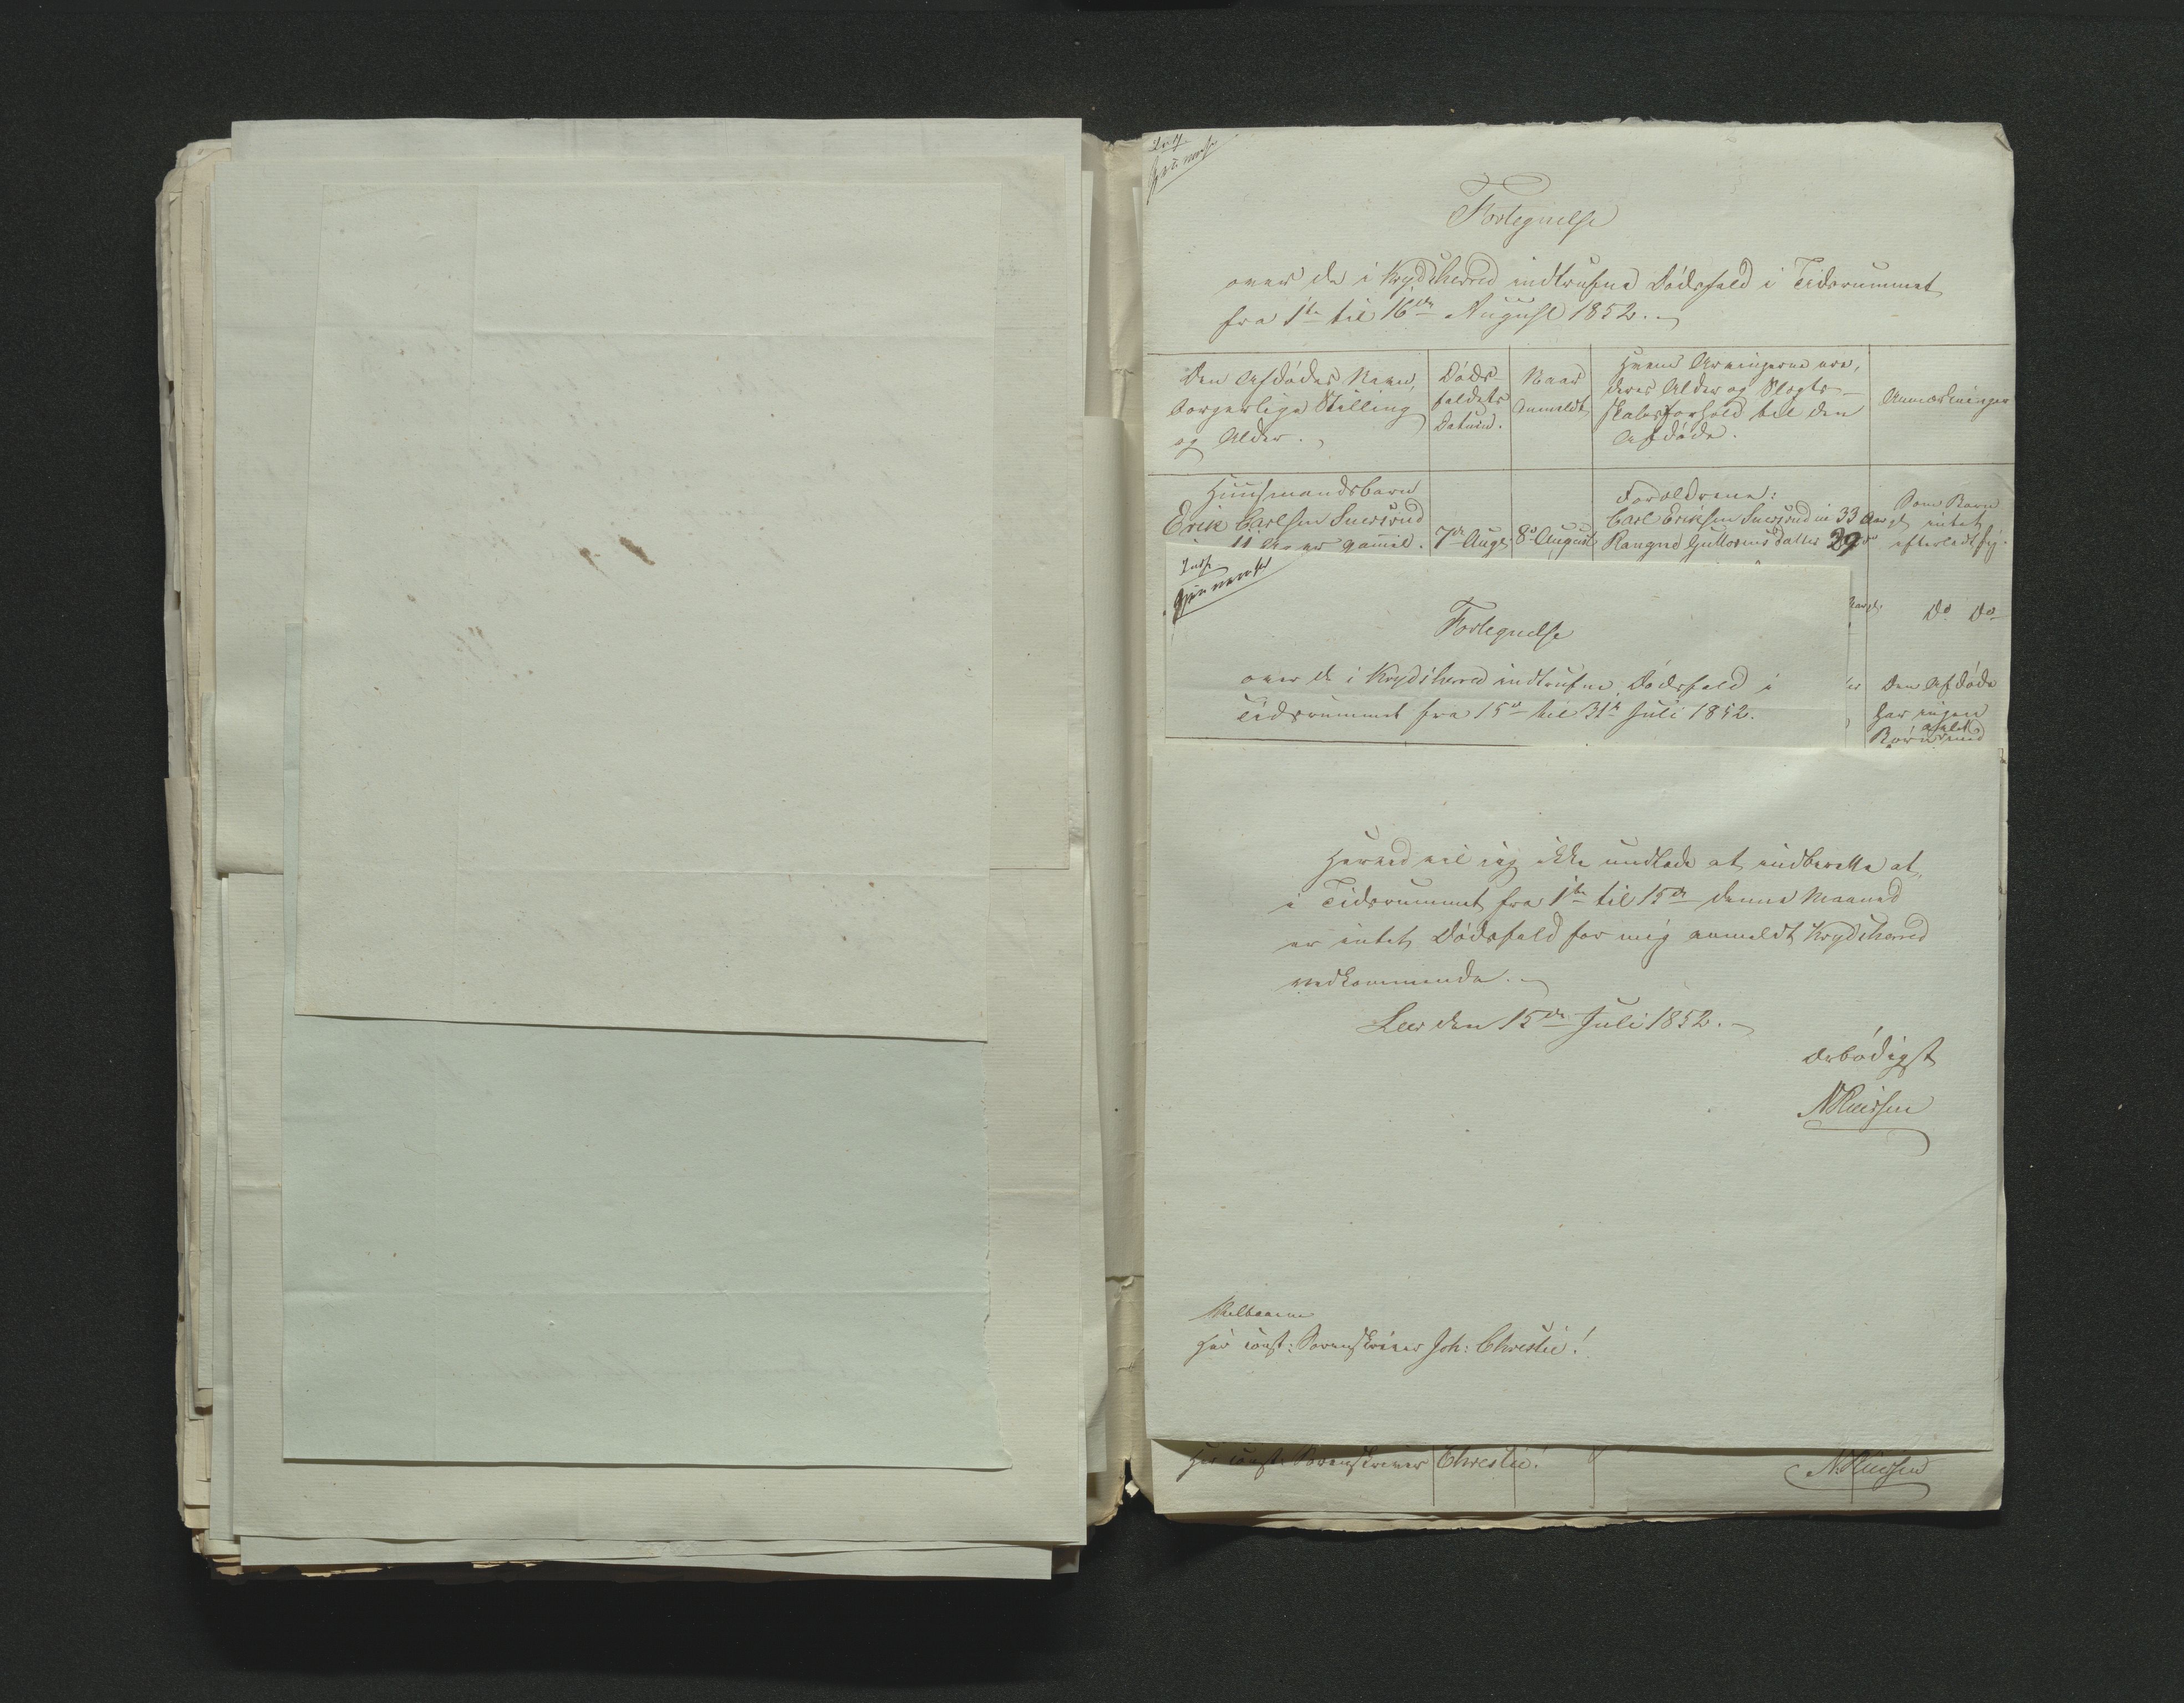 Fortegnelse
over de i Krydsherred indtrufne Dödsfald i Tidsrummet
fra 1ste til 16de August 1852.
Den Afdödes Navn,
borgerlige Stilling
og Alder.
Döds-
faldets
Datum.
Naar
Anmeldt
Hvem Arvingerne ere,
deres Alder og Slægt-
skabsforhold til den
Afdöde.
Anmærkninger
Huusmandsbarn
Erik Carlsen
gamel.
7de Aug:
8de August
Forældrene:
Carl Eriksen 33 Aar
Rangne Guttormsdatter 29
Som Barn
intet
efterladt sig.
Do Do
Den Afdöde
har ingen
Börn
Fortegnelse
over de i Krydsherred indtrufne Dödsfald i
Tidsrummet fra 15de til 31te Juli 1852.
Herved vil jeg ikke undlade at indberette at,
i Tidsrummet fra 1ste til 15de denne Maaned
er intet Dödsfald for mig anmeldt Krydsherred
vedkommende.
den 15de Juli 1852.
Ærbödigst
Velbaarne
Hör const: Sorenskriver Joh: Christie!
const: Sorenskriver Christie!